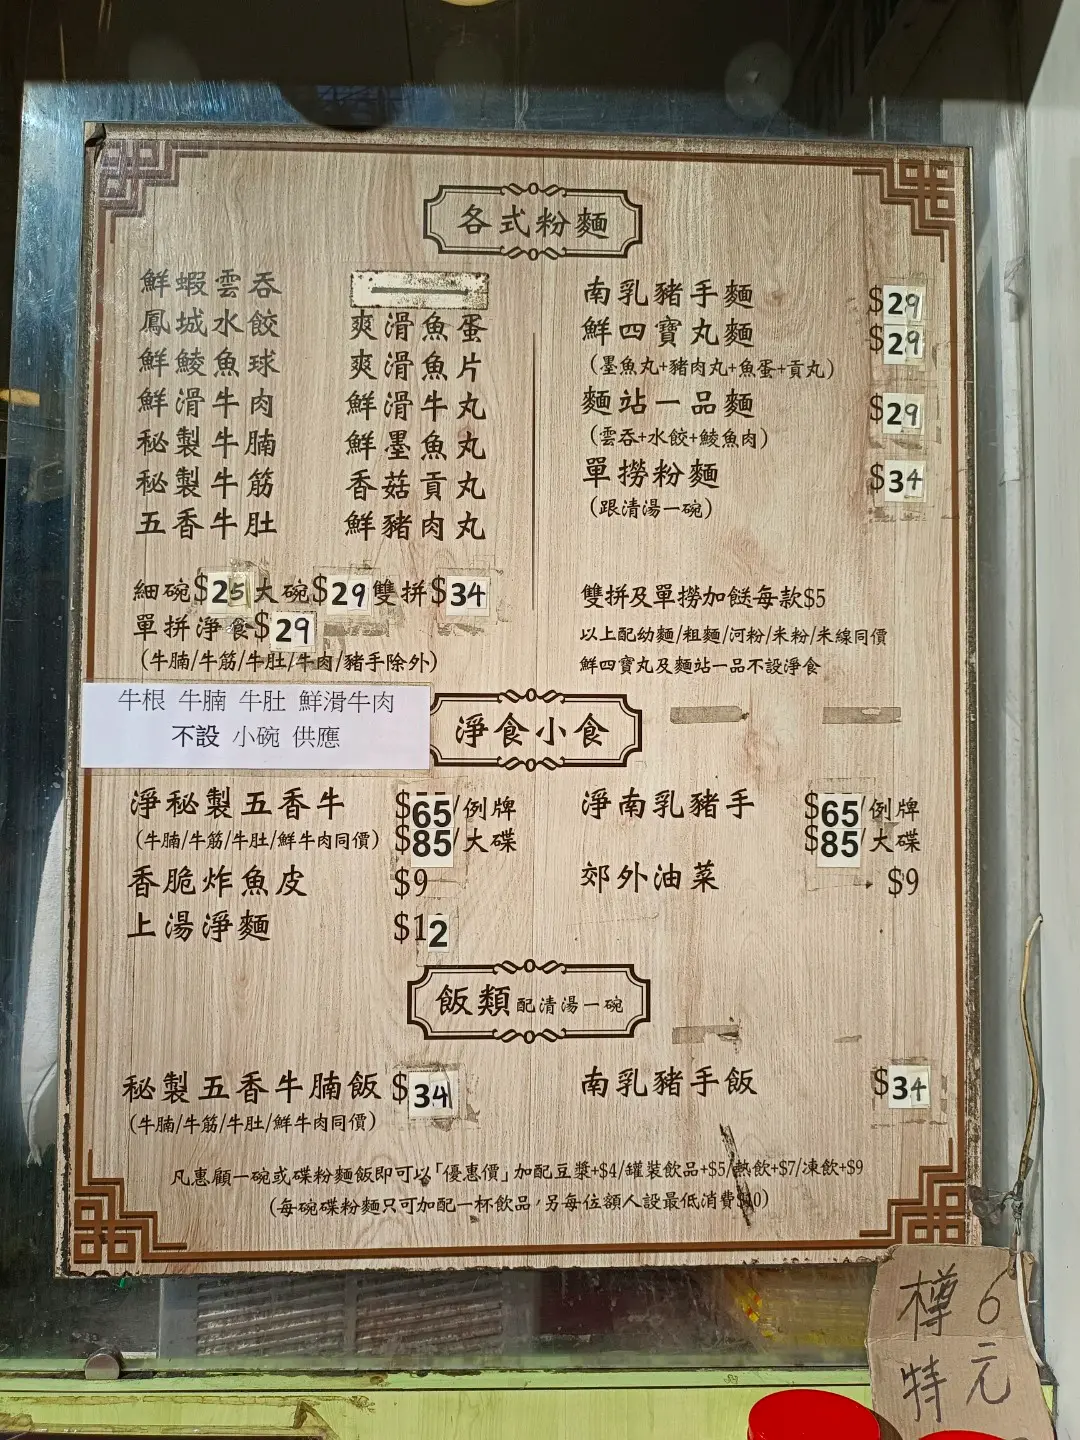 各式粉麵
鮮蝦雲吞
鳳城水餃
鮮鯪魚球
鮮滑牛肉
秘製牛腩
秘製牛筋
五香牛肚
爽滑魚蛋
爽滑魚片
鮮滑牛丸
鮮墨魚丸
香菇貢丸
鮮豬肉丸
細碗$25大碗$29雙拼$34
單拼淨食$29
(牛腩/牛筋/牛肚/牛肉/豬手除外)
南乳豬手麵 $29
鮮四寶丸麵 $29
(墨魚丸+豬肉丸+魚蛋+貢丸)
麵站一品麵 $29
(雲吞+水餃+鯪魚肉)
單撈粉麵 $34
(跟清湯一碗)
雙拼及單撈加餸每款$5
以上配幼麵/粗麵/河粉/米粉/米線同價
鮮四寶丸及麵站一品不設淨食
牛根 牛腩 牛肚 鮮滑牛肉
不設 小碗 供應
淨食小食
淨秘製五香牛 $65/例牌
(牛腩/牛筋/牛肚/鮮牛肉同價) $85/大碟
香脆炸魚皮 $9
上湯淨麵 $12
淨南乳豬手 $65/例牌
$85/大碟
郊外油菜 $9
飯類 配清湯一碗
秘製五香牛腩飯 $34
(牛腩/牛筋/牛肚/鮮牛肉同價)
南乳豬手飯 $34
凡惠顧一碗或碟粉麵飯即可以「優惠價」加配豆漿+$4/罐裝飲品+$5/熱飲+$7/凍飲+$9
(每碗碟粉麵只可加配一杯飲品，另每位額人設最低消費$10)
樽 6
特 元